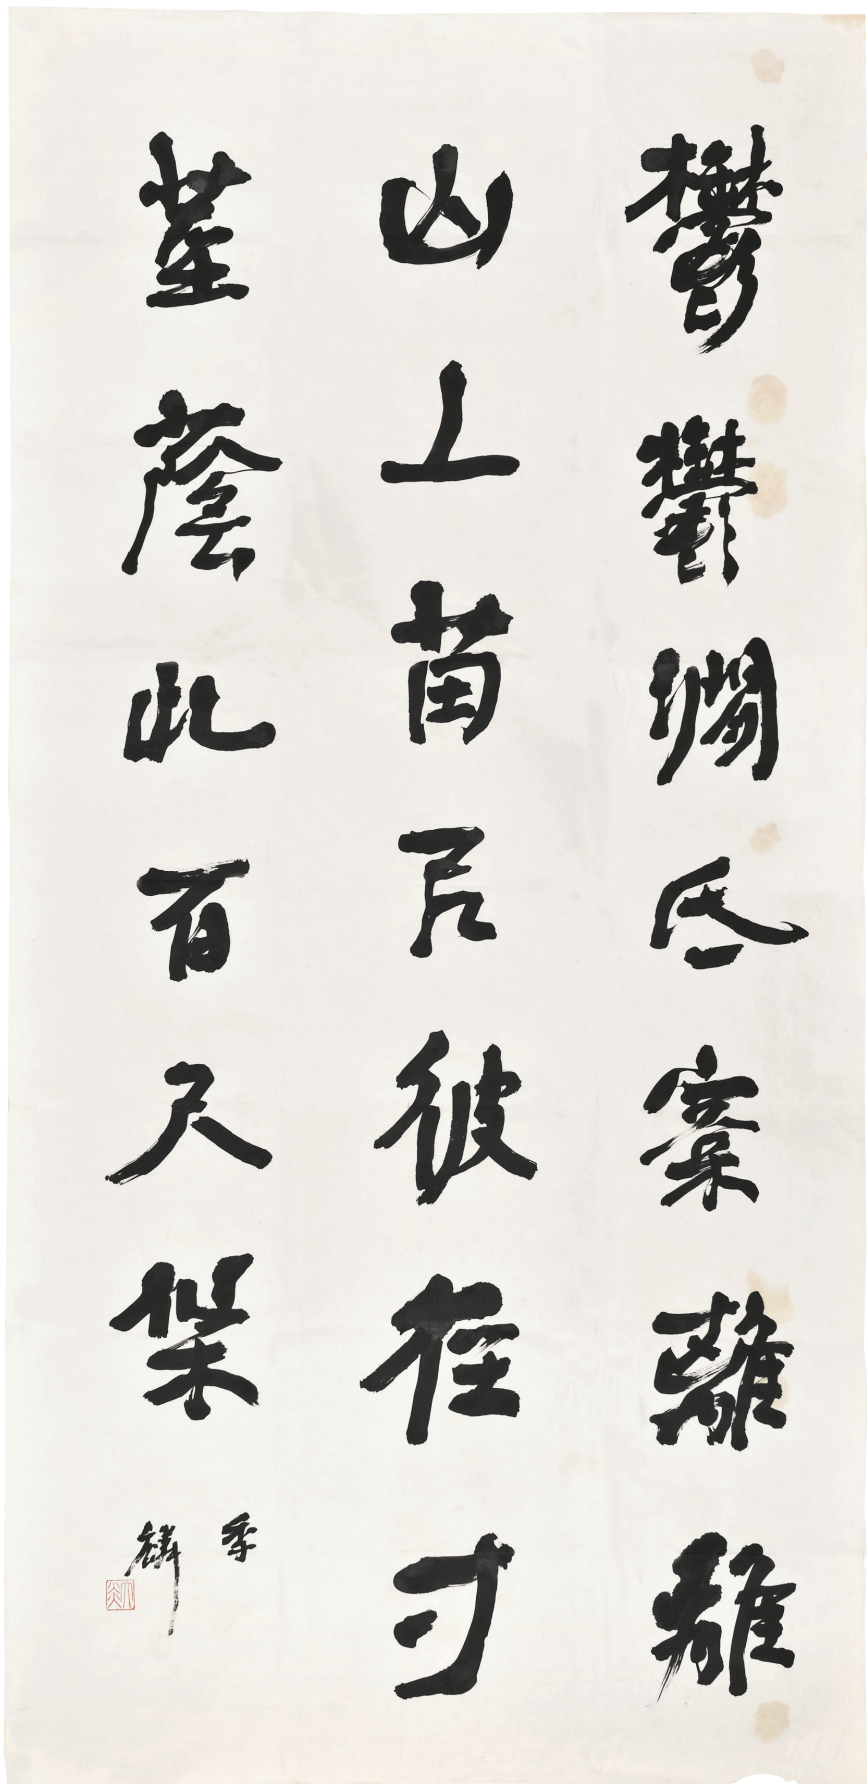 鬱鬱澗底松離離
山上苗㠯彼徑寸
莖蔭此百尺條